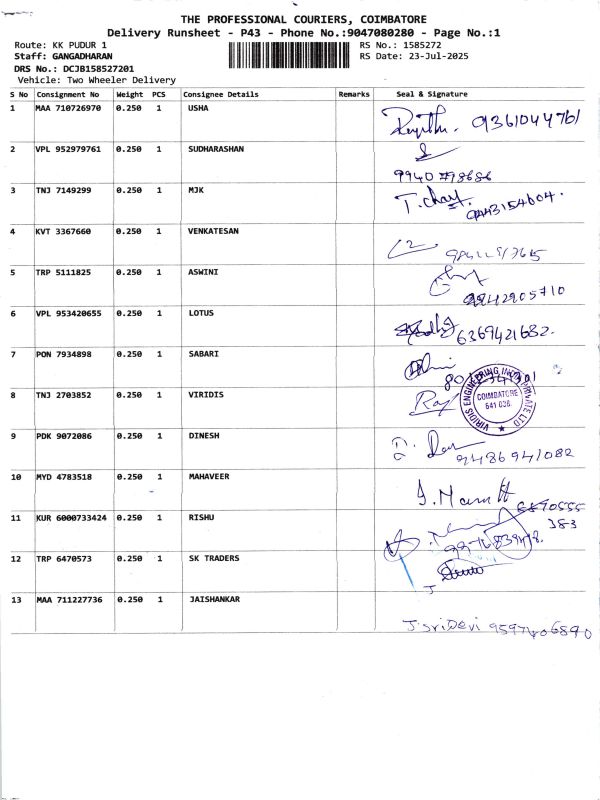 THE PROFESSIONAL COURIERS, COIMBATORE
Delivery Runsheet - P43 - Phone No.:9047080280 - Page No.:1
Route: KK PUDUR 1
RS No.: 1585272
Staff: GANGADHARAN
RS Date: 23-Jul-2025
DRS No.: DCJB158527201
Vehicle: Two Wheeler Delivery
S No Consignment No Weight PCS Consignee Details Remarks Seal & Signature
1 MAA 710726970 0.250 1 USHA
9361044761
2 VPL 952979761 0.250 1 SUDHARASHAN
3 TNJ 7149299 0.250 1 MJK
9443154604.
4 KVT 3367660 0.250 1 VENKATESAN
5 TRP 5111825 0.250 1 ASWINI
9842905710
6 VPL 953420655 0.250 1 LOTUS
6369421682.
7 PON 7934898 0.250 1 SABARI
8 TNJ 2703852 0.250 1 VIRIDIS
VIRIDIS ENGINEERING INDIA PRIVATE LTD
COIMBATORE
641 038.
9 PDK 9072086 0.250 1 DINESH
9486941082
10 MYD 4783518 0.250 1 MAHAVEER
11 KUR 6000733424 0.250 1 RISHU
12 TRP 6470573 0.250 1 SK TRADERS
13 MAA 711227736 0.250 1 JAISHANKAR
J. Sri Devi 9597406890